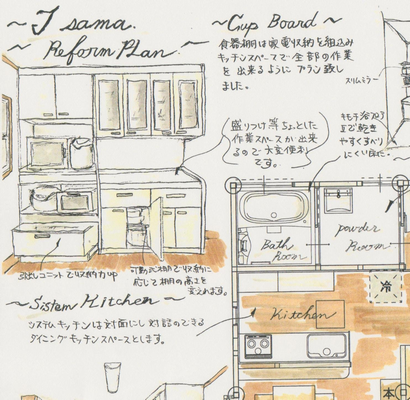 ~ I sama. ~
~ Reform Plan. ~
~ Cup Board ~
食器棚は家電収納を組込み
キッチンスペースで全部の作業
を出来るようにプラン致し
ました。
スリムミラー
盛りつけ等ちょとした
作業スペースが出来
るので大変便利
です。
乾き
やすくすべり
にくい床に。
Bath Room
powder Room
引出しユニットで収納力up
可動式棚で収納に
応じて棚の高さを
変えれます。
~ Sistem Kitchen ~
システムキッチンは対面にし対話のできる
ダイニングキッチンスペースとします。
Kitchen
冷
本